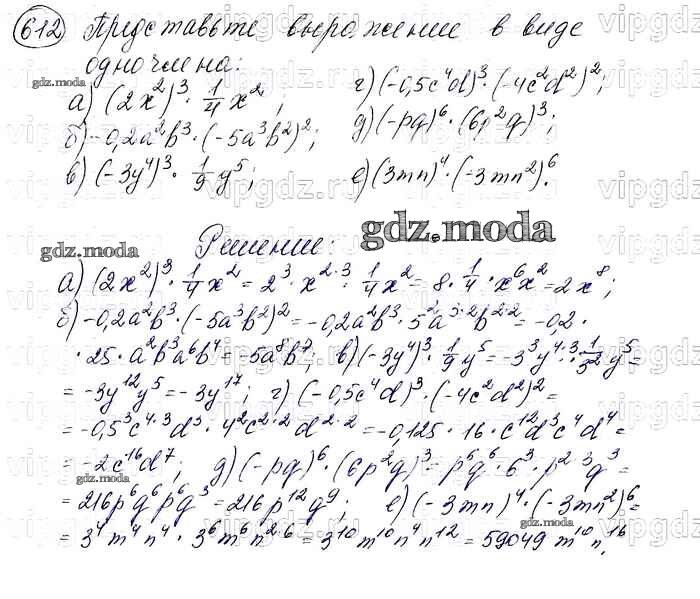 612 Представьте выражение в виде
одночлена:
а) (2x²)³ · 1/4 x²; г) (-0,5c⁴d)³ · (-4c²d²)²;
б) -0,2a²b³ · (-5a³b²)²; д) (-pq)⁶ · (6p²q)³;
в) (-3y⁴)³ · 1/9 y⁵; е) (3mn)⁴ · (-3mn²)⁶.
gdz.moda
Решение: gdz.moda
gdz.moda
а) (2x²)³ · 1/4 x² = 2³ · x²·³ · 1/4 x² = 8 · 1/4 · x⁶x² = 2x⁸;
б) -0,2a²b³ · (-5a³b²)² = -0,2a²b³ · 5²a³·²b²·² = -0,2 ·
· 25 · a²b³a⁶b⁴ = -5a⁸b⁷; в) (-3y⁴)³ · 1/9 y⁵ = -3³y⁴·³ · 1/3² y⁵ =
= -3y¹²y⁵ = -3y¹⁷; г) (-0,5c⁴d)³ · (-4c²d²)² =
= -0,5³c⁴·³d³ · 4²c²·²d²·² = -0,125 · 16 · c¹²d³c⁴d⁴ =
= -2c¹⁶d⁷; д) (-pq)⁶ · (6p²q)³ = p⁶q⁶ · 6³ · p²·³q³ =
gdz.moda
= 216p⁶q⁶p⁶q³ = 216p¹²q⁹; е) (-3mn)⁴ · (-3mn²)⁶ =
gdz.moda
= 3⁴m⁴n⁴ · 3⁶m⁶n²·⁶ = 3¹⁰m¹⁰n⁴n¹² = 59049 m¹⁰n.
vipgdz.ru